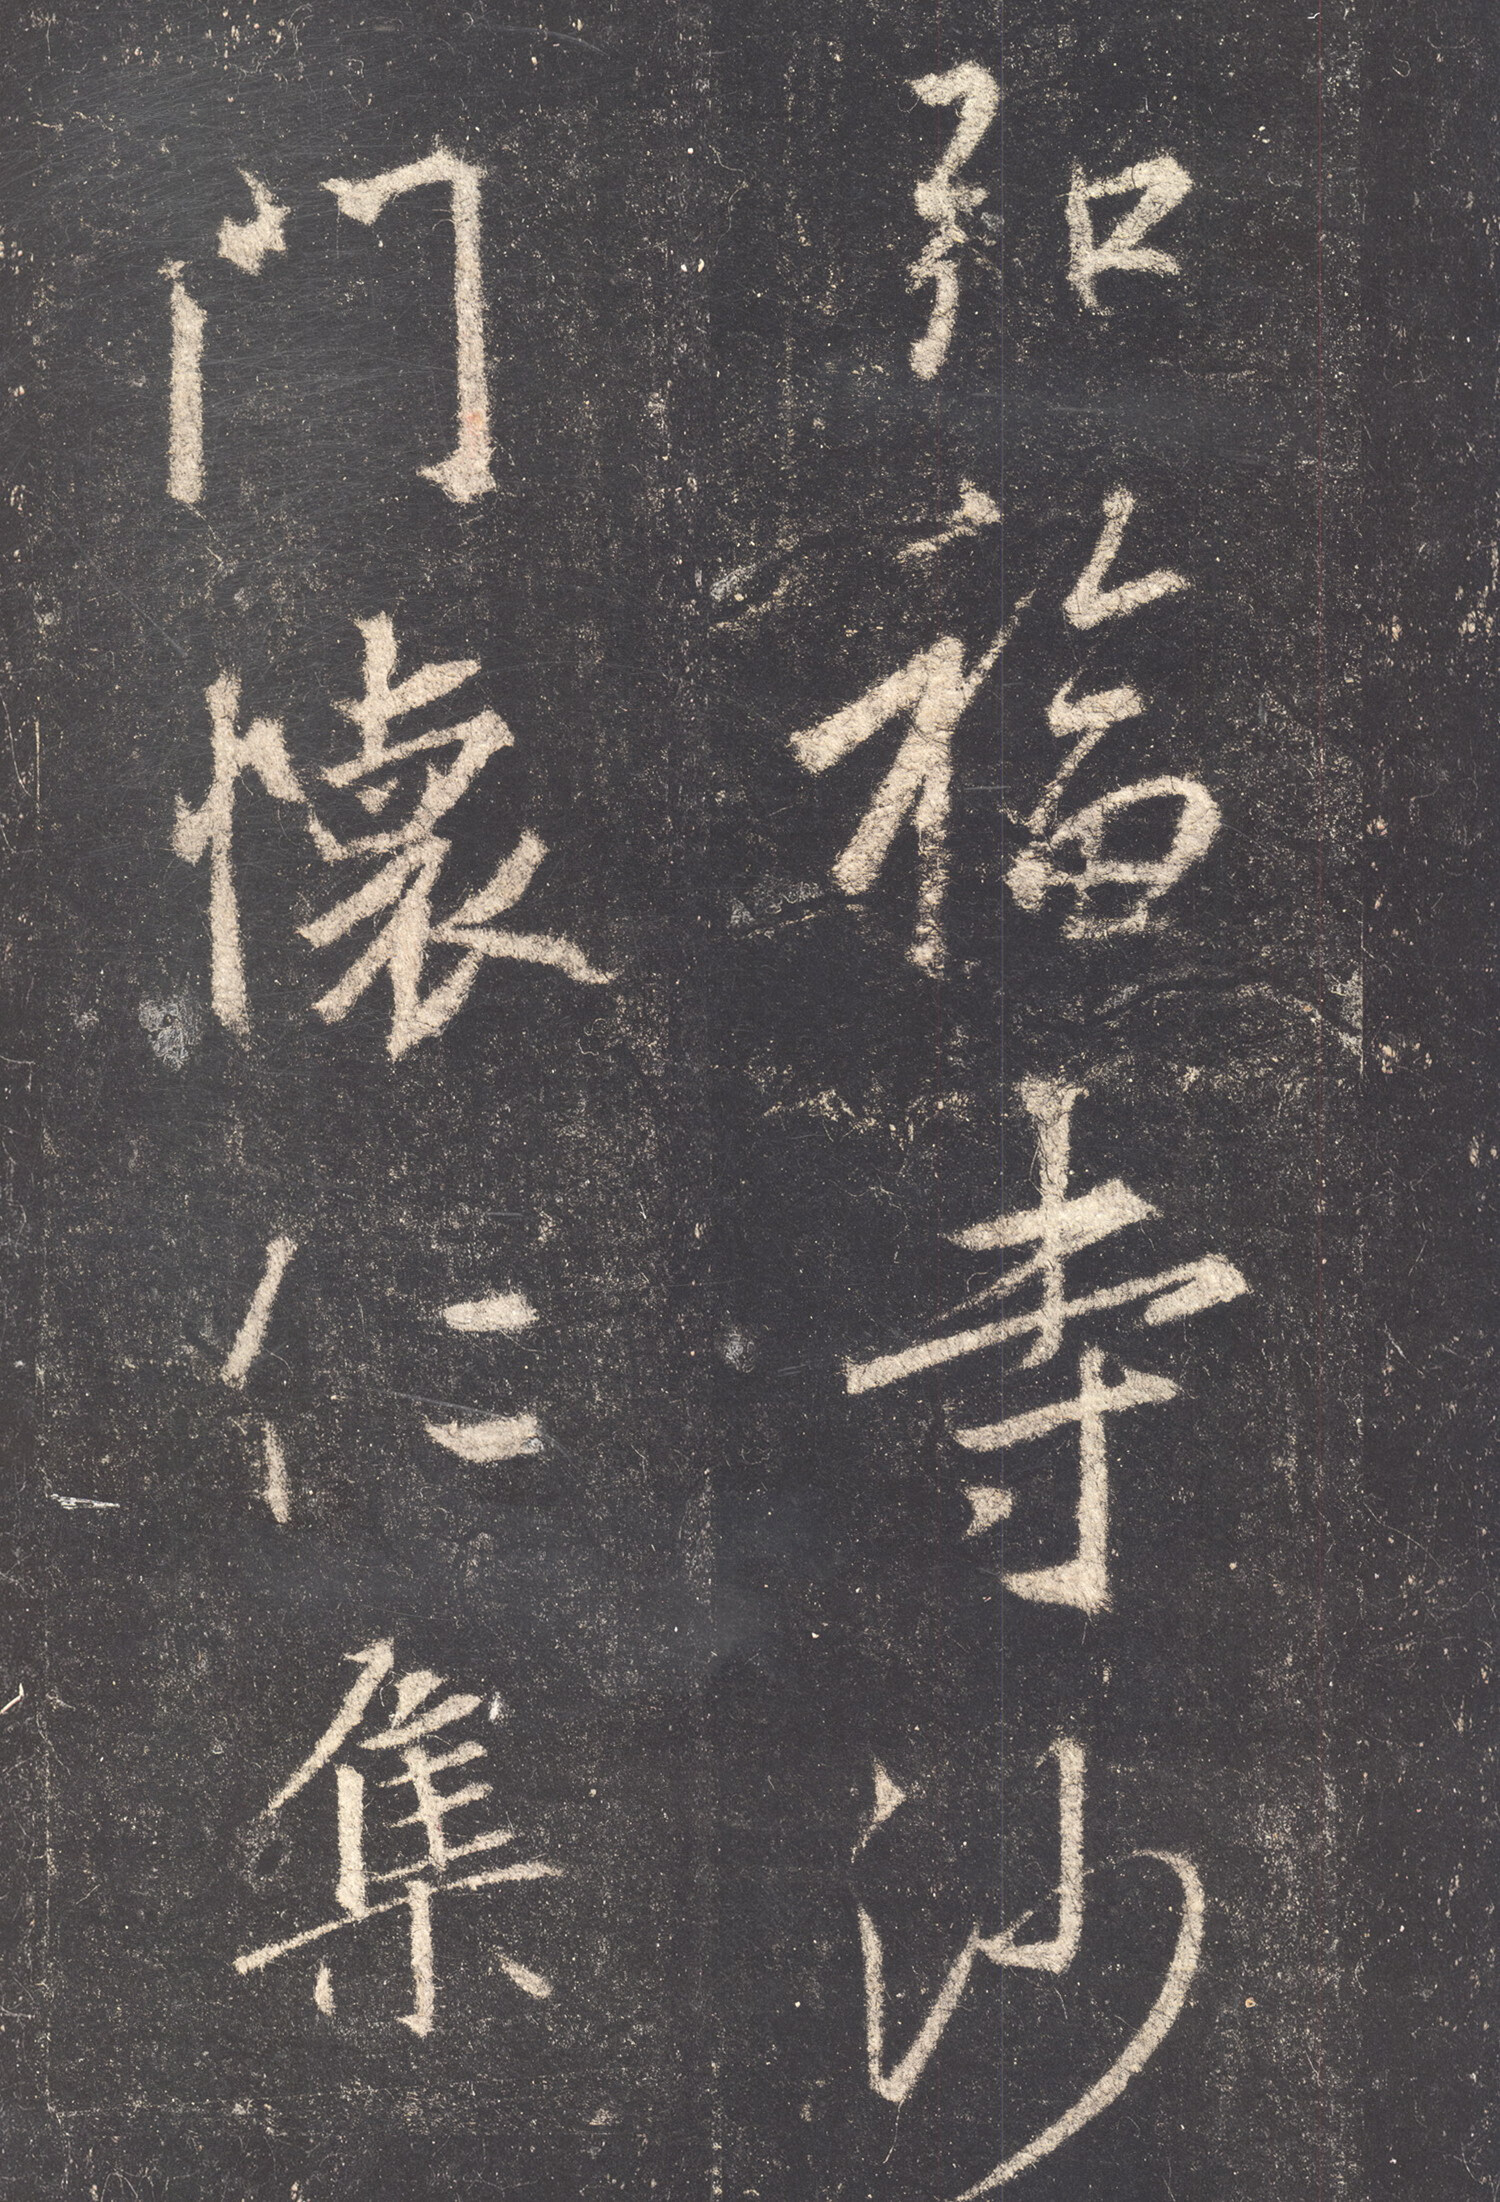 弘福寺沙
門懷仁集